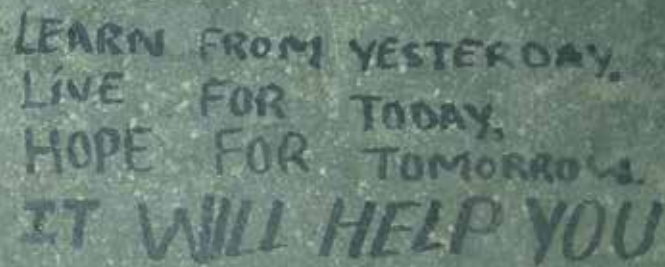 LEARN FROM YESTERDAY.
LiVE FOR TODAY,
HOPE FOR TOMORROW.
IT WILL HELP YOU